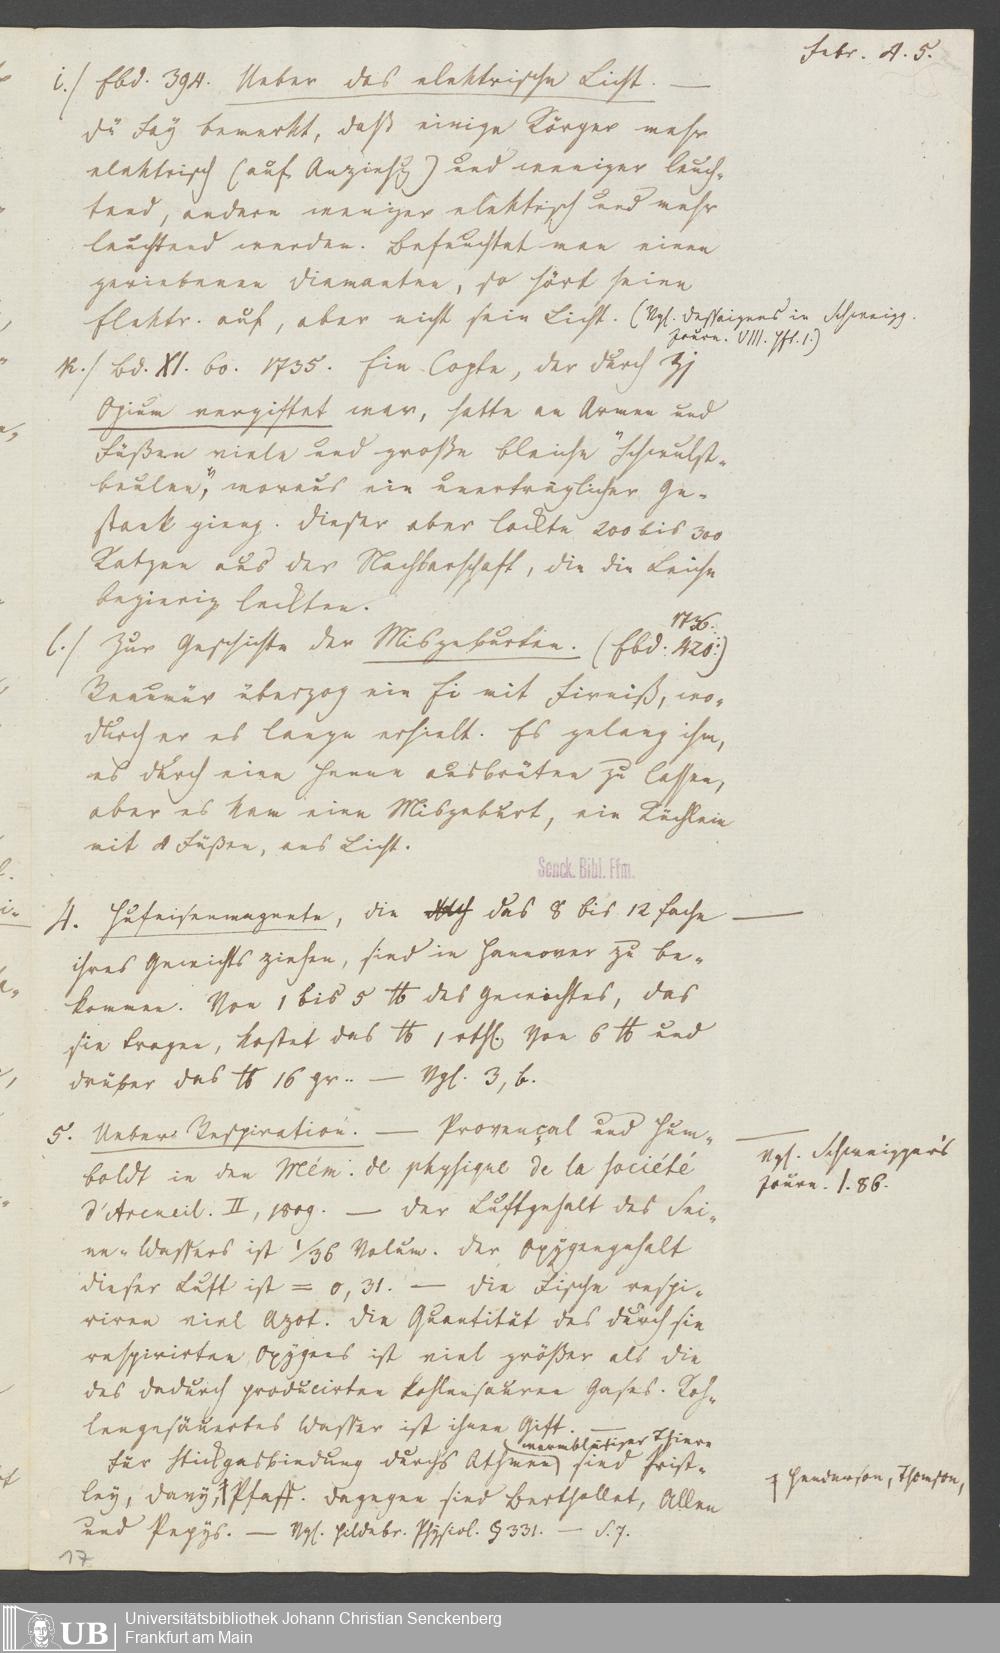 Febr. 4. 5.
i./ Ebd. 394. Ueber das elektrische Licht. —
Dü Fay bemerkt, daß einige Körper mehr
elektrisch (auf Anziehg) und weniger leuch-
tend, andere weniger elektrisch und mehr
leuchtend werden. Befeuchtet man einen
geriebenen Diamanten, so hört seine
Elektr. auf, aber nicht sein Licht. (Vgl. Dessaignes in Schweigg.
Journ. VIII. Hft. 1.)
k./ Bd. XI. 60. 1735. Ein Copte, der durch ʒj
Opium vergiftet war, hatte an Armen und
Füßen viele und große bleiche "Schwulst-
beulen", woraus ein unerträglicher Ge-
stank gieng. Dieser aber lockte 200 bis 300
Katzen aus der Nachbarschaft, die die Leiche
begierig leckten.
l./ Zur Geschichte der Misgeburten. (Ebd. 1736. 428.)
Reaumür überzog ein Ei mit Firniß, wo-
durch er es lange erhielt. Es gelang ihm,
es durch eine Henne ausbrüten zu lassen,
aber es kam eine Misgeburt, ein Küchlein
mit 4 Füßen, ans Licht.
Senck. Bibl. Ffm.
4. Hufeisenmagnete, die das 8 bis 12 fache —
ihres Gewichts ziehen, sind in Hannover zu be-
kommen. Von 1 bis 5 ℔ des Gewichtes, das
sie tragen, kostet das ℔ 1 rthl. Von 6 ℔ und
drüber das ℔ 16 gr.. — Vgl. 3, b.
5. Ueber Respiration. — Provençal und Hum-
boldt in den Mém. de physique de la société
d'Arcueil. II, 1809. — Der Luftgehalt des Sei-
ne-Wassers ist 1/36 Volum. Der Oxygengehalt
dieser Luft ist = 0,31. — Die Fische respi-
riren viel Azot. Die Quantität des durch sie
respirirten Oxygens ist viel größer als die
des dadurch producirten kohlensauren Gases. Koh-
lengesäuertes Wasser ist ihnen Gift. —
Für Stickgasbindung durchs Athmen warmblütiger Thiere sind Priest-
ley, Davy, Pfaff. Dagegen sind Berthollet, Allen
und Pepys. — Vgl. Hildebr. Physiol. § 331. — S. 7.
Vgl. Schweigger's
Journ. I. 86.
Henderson, Thomson,
17
Universitätsbibliothek Johann Christian Senckenberg
Frankfurt am Main
UB